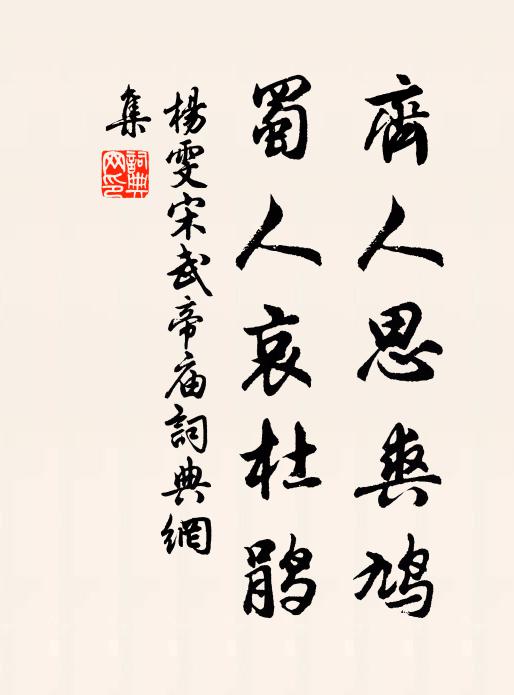 齊人思爽鳩
蜀人哀杜鵑
楊雯宋武帝庙詞典網
集
詞典
网印